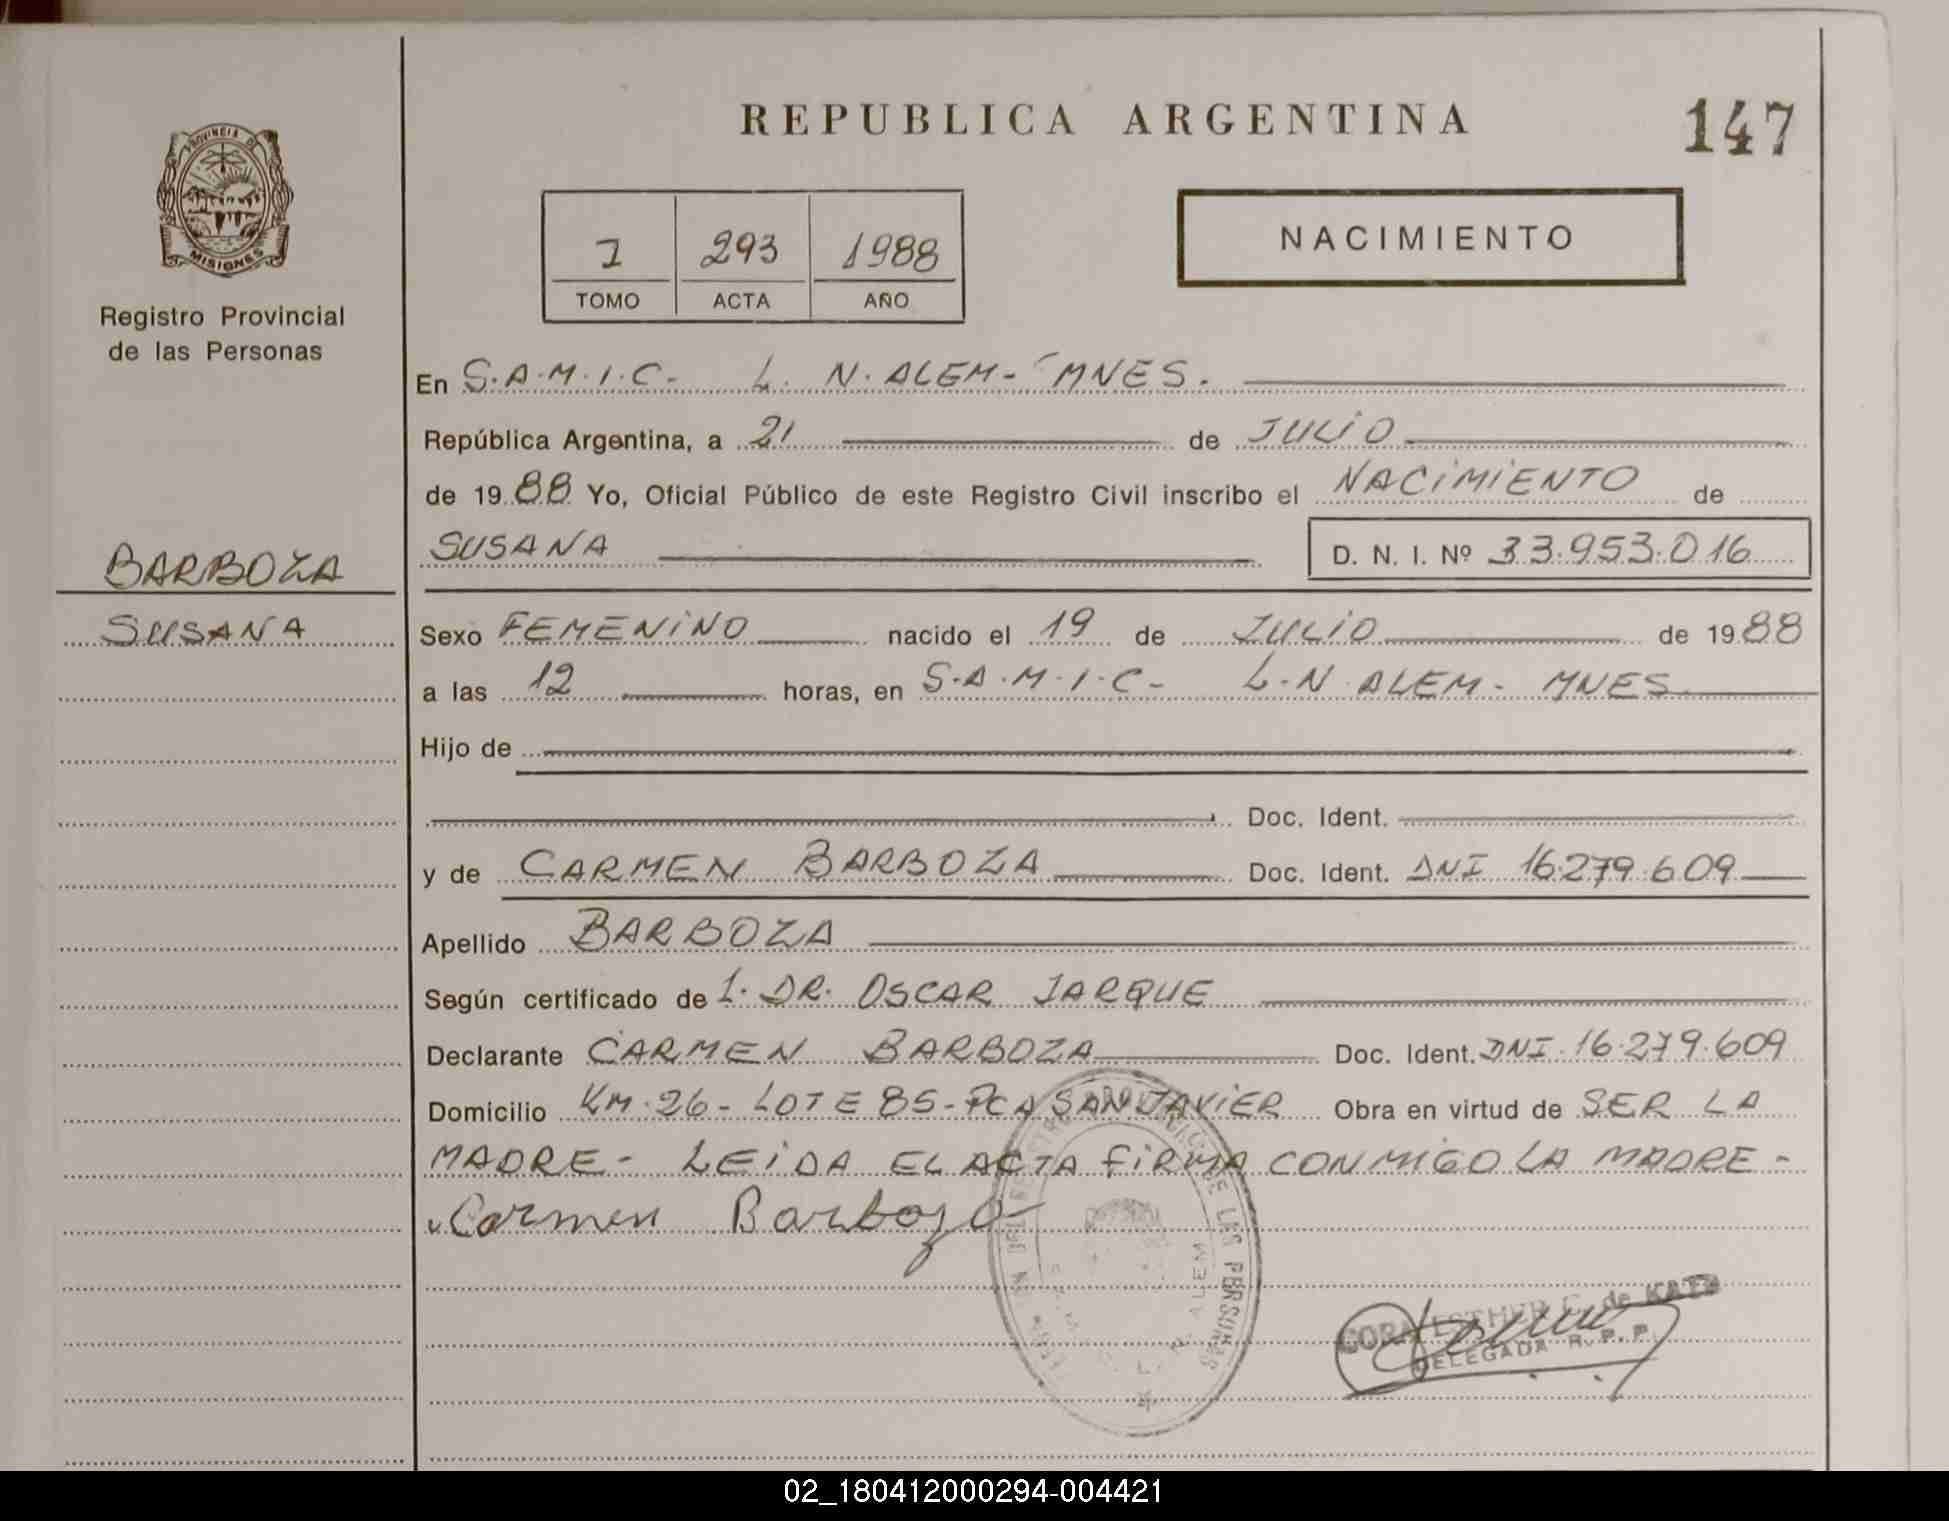 REPUBLICA ARGENTINA
147
PROVINCIA DE
MISIONES
Registro Provincial
de las Personas
1 293 1988
TOMO ACTA AÑO
NACIMIENTO
En S.A.M.I.C- L. N. ALEM- MNES.
República Argentina, a 21 de JULIO
de 1988 Yo, Oficial Público de este Registro Civil inscribo el NACIMIENTO de
SUSANA D. N. I. Nº 33.953.016
BARBOZA
SUSANA
Sexo FEMENINO nacido el 19 de JULIO de 1988
a las 12 horas, en S.A.M.I.C- L.N. ALEM- MNES
Hijo de
Doc. Ident.
y de CARMEN BARBOZA Doc. Ident. DNI 16.279.609
Apellido BARBOZA
Según certificado de 1. DR. OSCAR JARQUE
Declarante CARMEN BARBOZA Doc. Ident. DNI. 16.279.609
Domicilio KM.26- LOTE 85- PCA SAN JAVIER Obra en virtud de SER LA
MADRE- LEIDA EL ACTA FIRMA CONMIGO LA MADRE-
Carmen Barboza
DE LAS PERSONAS
L. N. ALEM
ESTHER de KATZ
DELEGADA R. P. P.
02_180412000294-004421